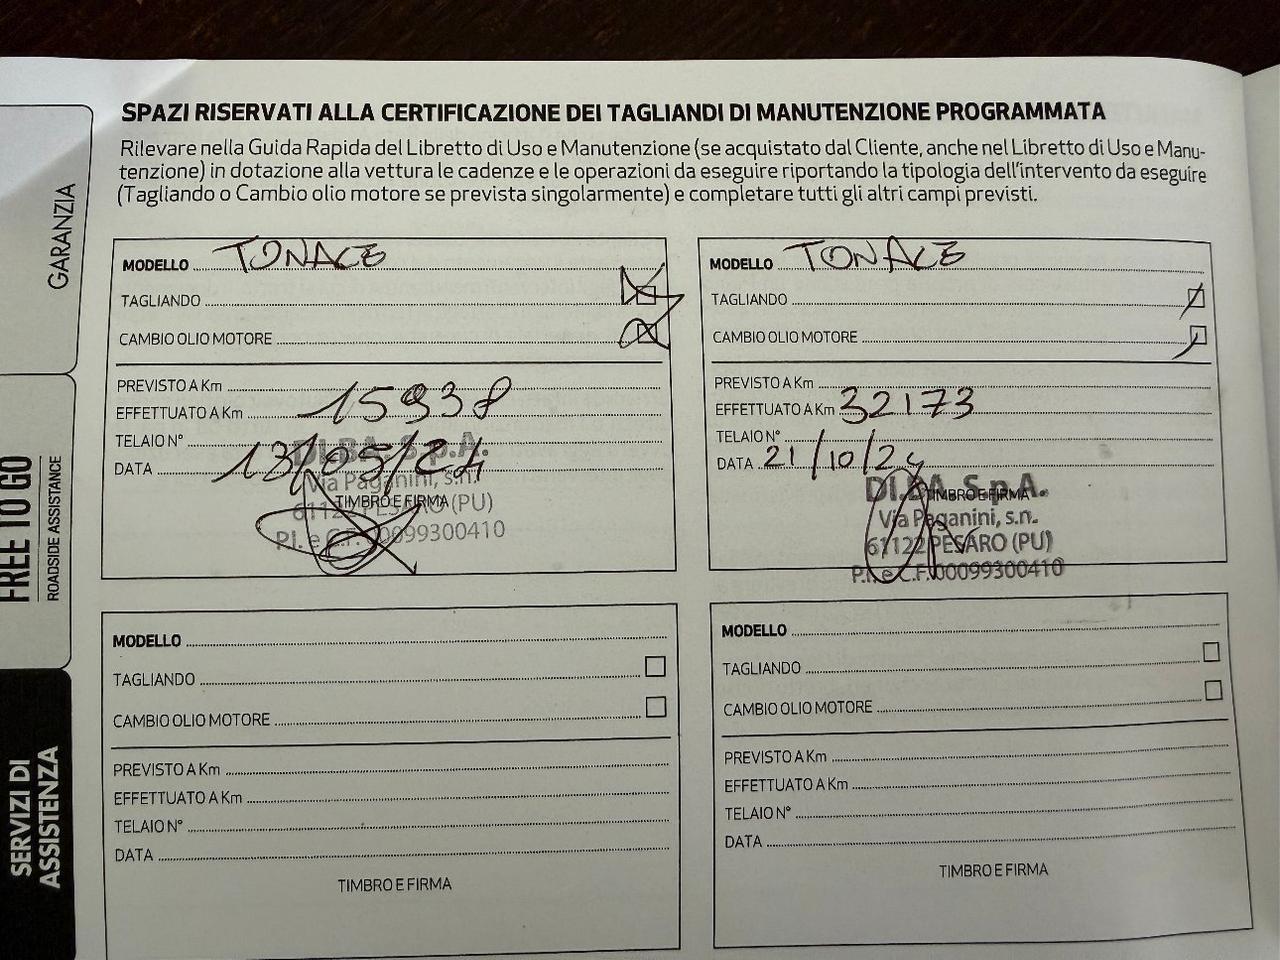 SPAZI RISERVATI ALLA CERTIFICAZIONE DEI TAGLIANDI DI MANUTENZIONE PROGRAMMATA
Rilevare nella Guida Rapida del Libretto di Uso e Manutenzione (se acquistato dal Cliente, anche nel Libretto di Uso e Manu-
tenzione) in dotazione alla vettura le cadenze e le operazioni da eseguire riportando la tipologia dell'intervento da eseguire
(Tagliando o Cambio olio motore se prevista singolarmente) e completare tutti gli altri campi previsti.
GARANZIA
FREE TO GO
ROADSIDE ASSISTANCE
SERVIZI DI
ASSISTENZA
MODELLO TONALE
TAGLIANDO
CAMBIO OLIO MOTORE
PREVISTO A Km
EFFETTUATO A Km 15938
TELAIO N°
DATA 13/05/24
TIMBRO E FIRMA
DI.BA. S.p.A.
Via Paganini, s.n.
61122 PESARO (PU)
P.I. e C.F. 00099300410
MODELLO TONALE
TAGLIANDO
CAMBIO OLIO MOTORE
PREVISTO A Km
EFFETTUATO A Km 32173
TELAIO N°
DATA 21/10/24
TIMBRO E FIRMA
DI.BA. S.p.A.
Via Paganini, s.n.
61122 PESARO (PU)
P.I. e C.F. 00099300410
MODELLO
TAGLIANDO
CAMBIO OLIO MOTORE
PREVISTO A Km
EFFETTUATO A Km
TELAIO N°
DATA
TIMBRO E FIRMA
MODELLO
TAGLIANDO
CAMBIO OLIO MOTORE
PREVISTO A Km
EFFETTUATO A Km
TELAIO N°
DATA
TIMBRO E FIRMA